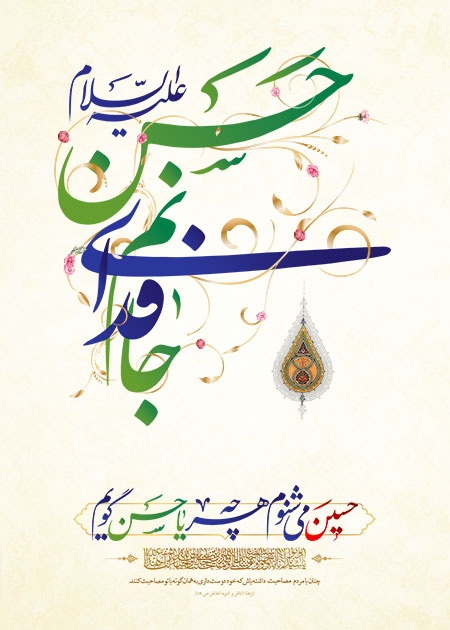 جانم فدای حسن
علیه السلام
حسین می‌شنوم هر چه یا حسن گویم
چنان با مردم مصاحبت داشته باش که خود دوست داری به همان گونه با تو مصاحبت کنند.